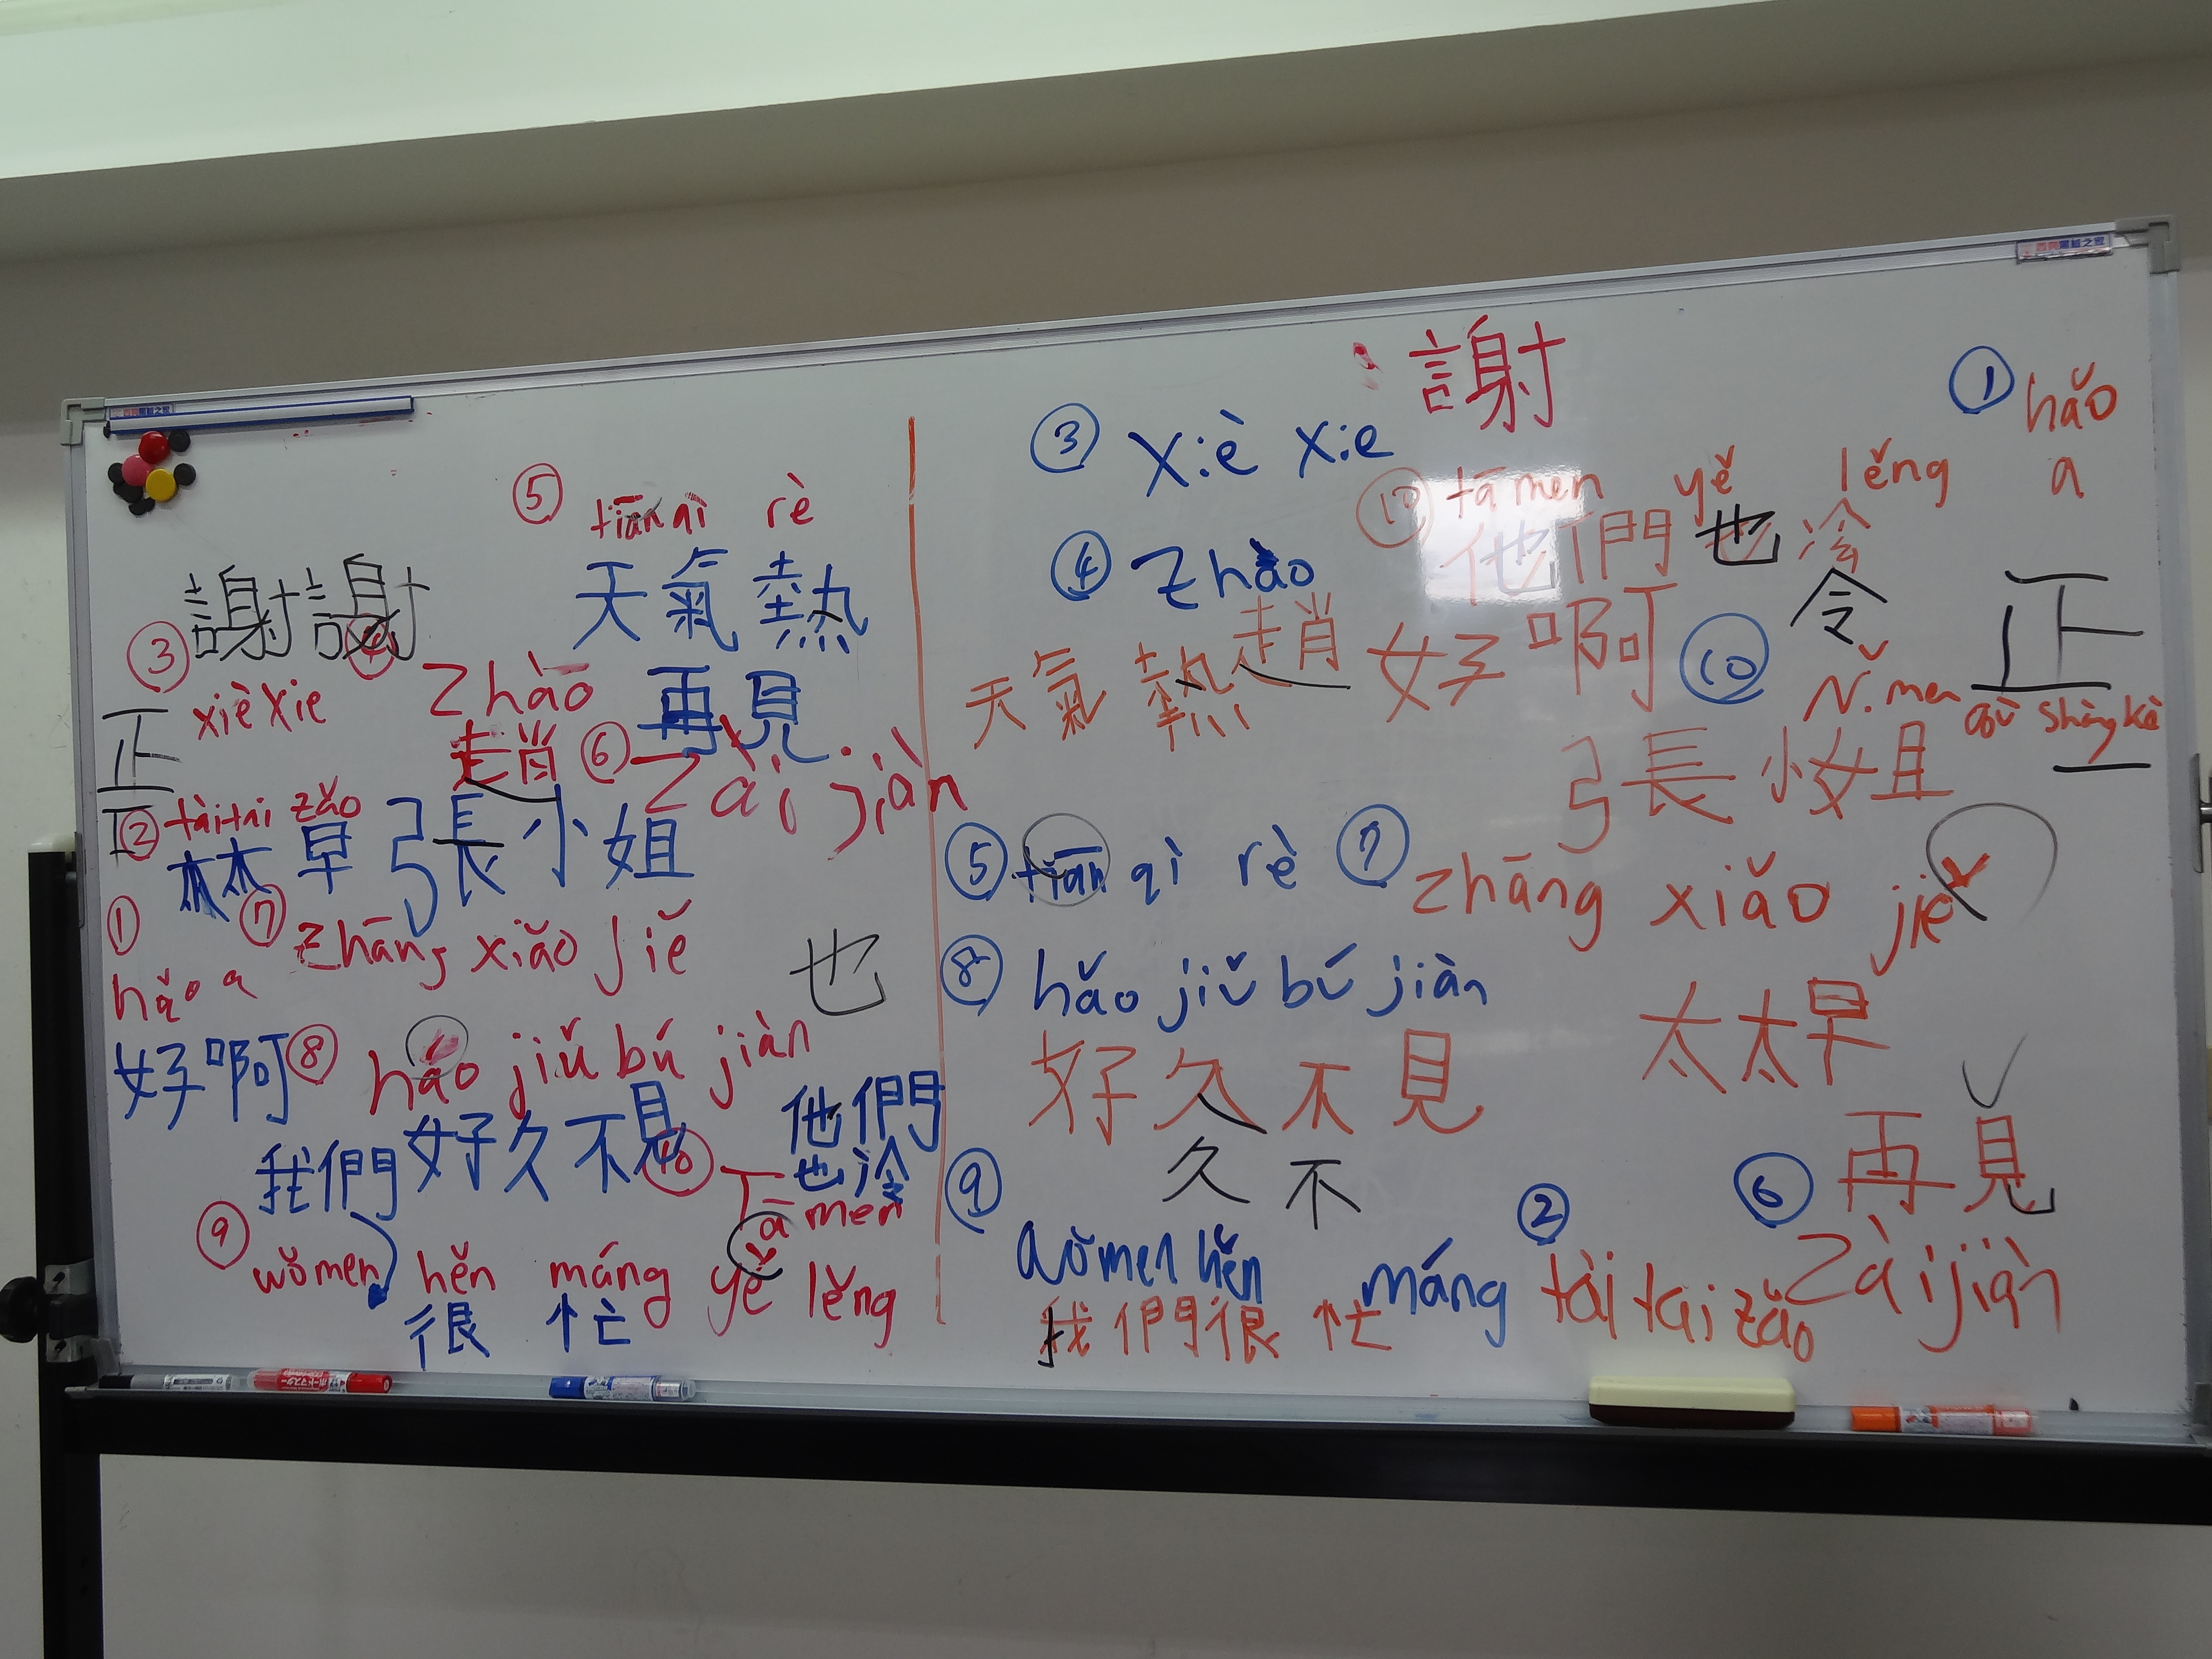 ⑤ tiān qì rè
天氣熱
謝謝
③ xiè xie
④ zhào
趙
再見
⑥ zài jiàn
正
② tàitai zǎo
太太早
張小姐
① hǎo a
⑦ zhāng xiǎo jiě
也
好啊
⑧ hǎo jiǔ bú jiàn
好久不見
他們
也冷
我們
⑩ Tā men
⑨ wǒ men hěn máng
yě lěng
很忙
謝
① hǎo
a
③ xiè xie
⑩ tā men yě lěng
他們也冷
令
④ zhào
趙
好啊
⑩
天氣熱
正
nǐ men
qù shàng kè
張小姐
⑤ tiān qì rè
⑦ zhāng xiǎo jiě
⑧ hǎo jiǔ bú jiàn
太太早
好久不見
久不
再見
⑥
⑨
wǒ men hěn máng
② tài tai zǎo
zài jiàn
我們很忙